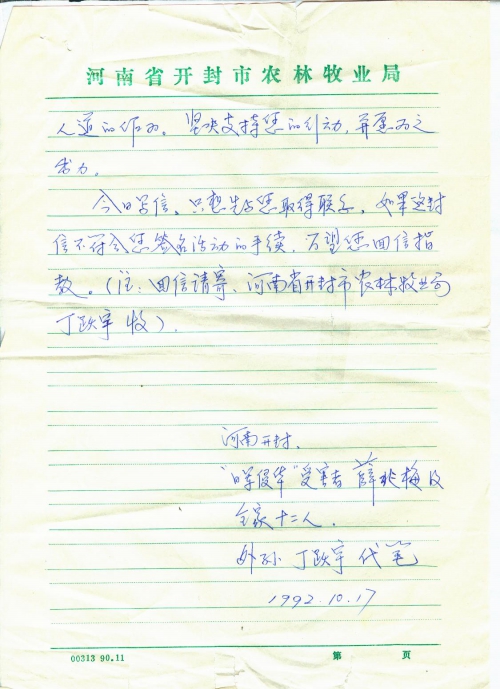 河南省开封市农林牧业局
人道的作为。坚决支持您的行动,并愿为之
出力。
今日写信,只想先与您取得联系,如果这封
信不符合您签名活动的手续,万望您回信指
教。(注:回信请寄、河南省开封市农林牧业局
丁跃宇收)。
河南开封.
"日军侵华"受害者 薛兆梅及
全家十二人.
外孙 丁跃宇 代笔
1992.10.17
00313 90.11 第 页